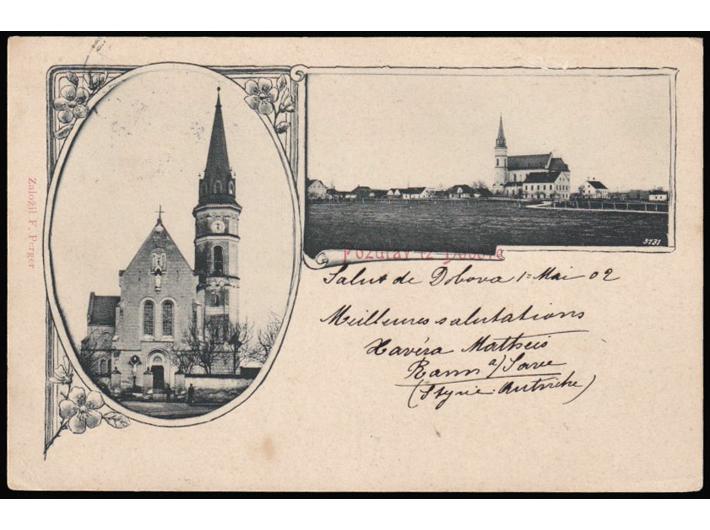 Založil F. Perger
5731
Pozdrav iz Dobova
Salut de Dobova 1= Mai 02
Meilleures salutations
Xavéra Matheis
Rann a/ Save
(Styrie-Autriche)